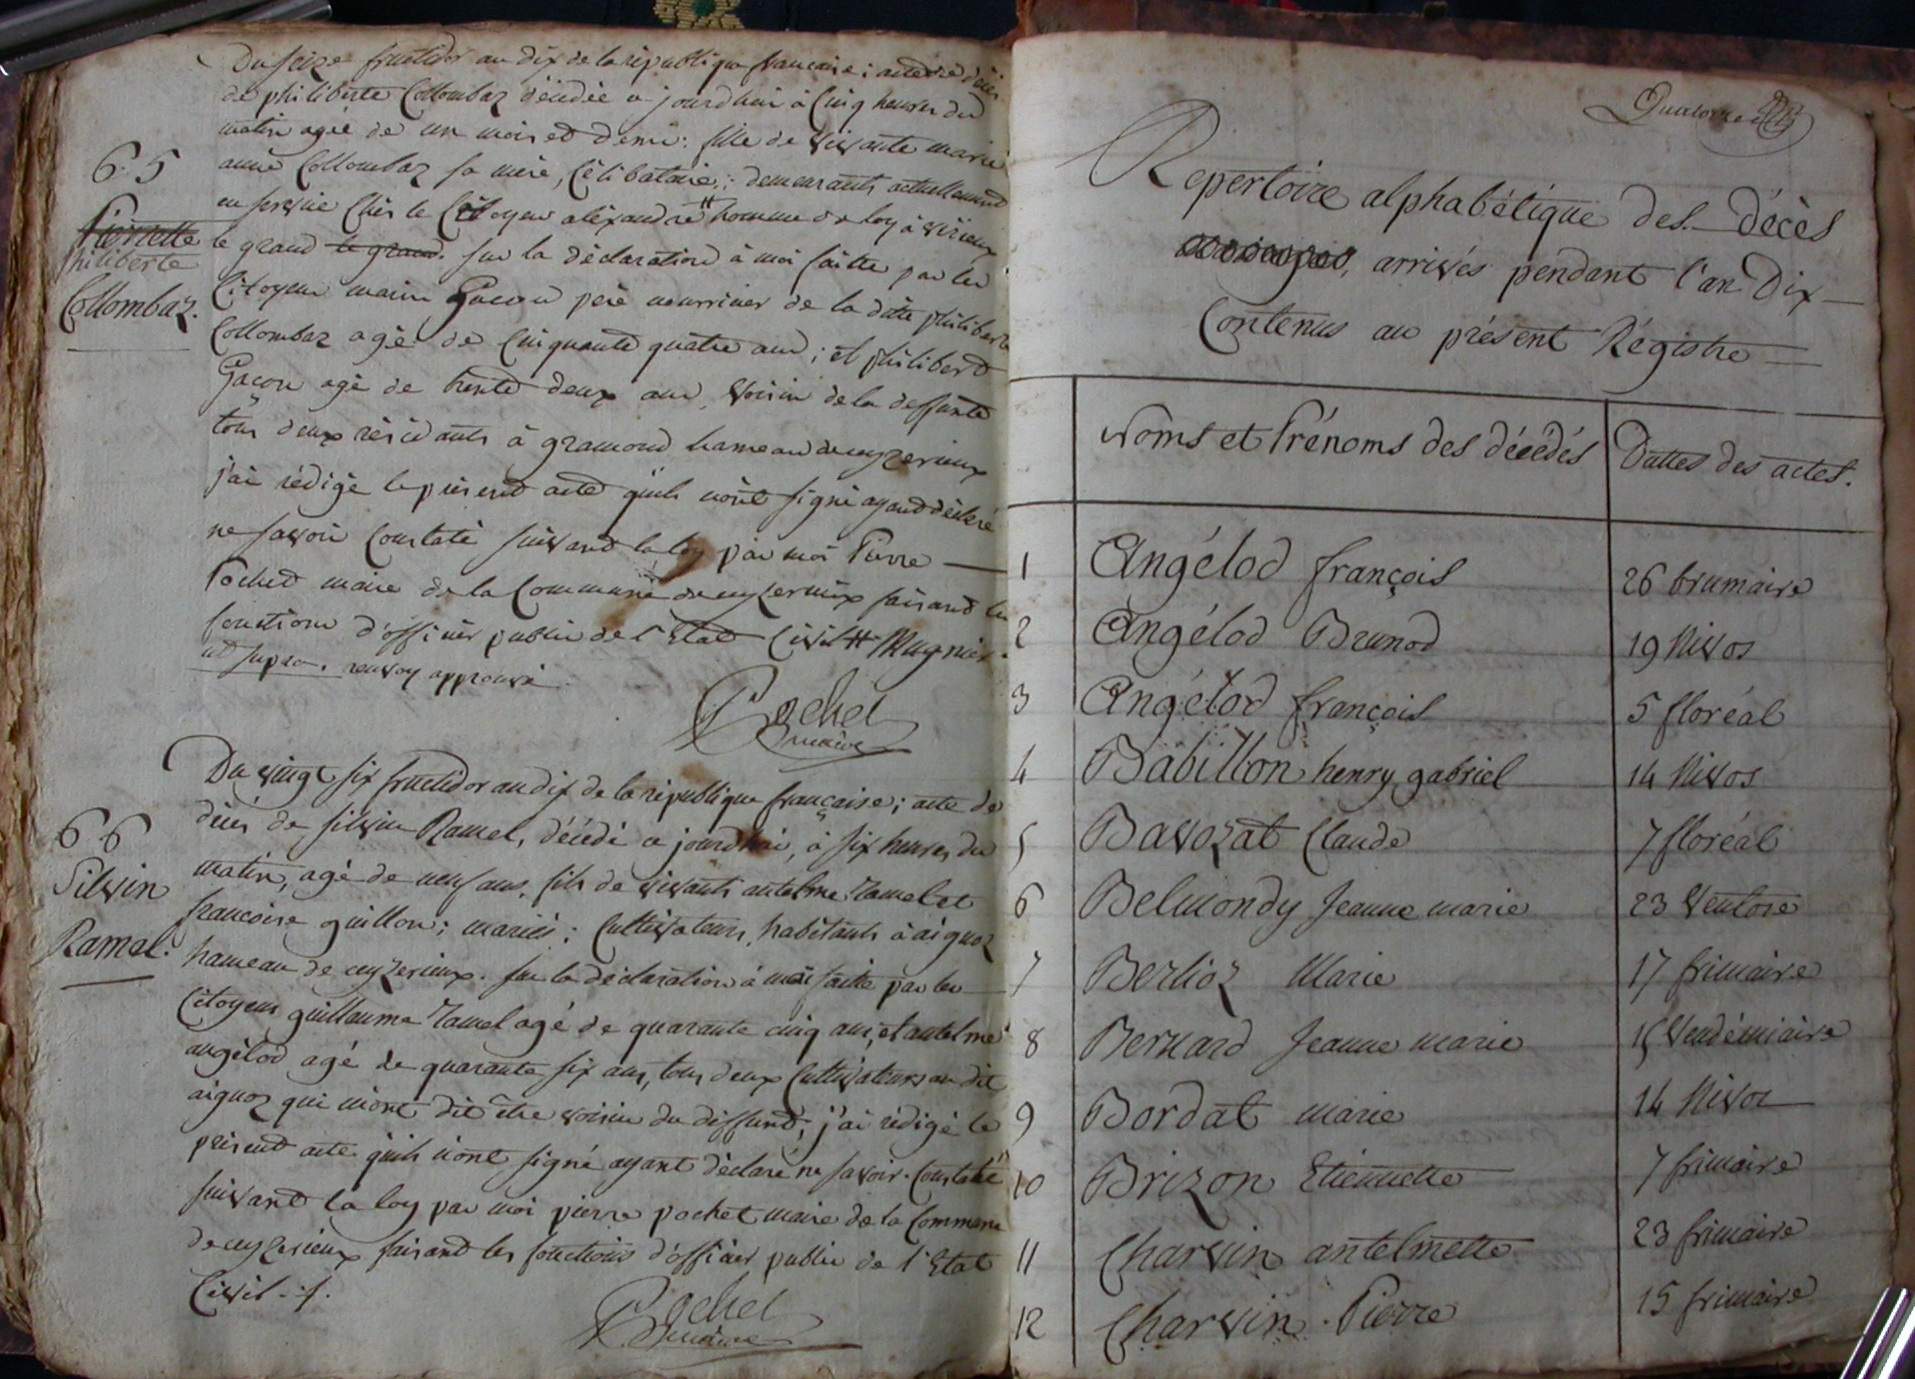 65
Pierrette
philiberte
Collombaz.
Du seize fructidor an dix de la république francaise ; acte de décès
de philiberte Collombaz décédée ce jourd'hui à Cinq heures du
matin agée de un mois et demi : fille de vivante marie
anne Collombaz sa mère, Célibataire ; demeurants actuellement
en service Chés le Citoyen aléxandre # homme de loy à virieux
le grand le grand. sur la déclaration à moi faitte par les
Citoyens Gacon père nourricier de la ditte philiberte
Collombaz agé de Cinquante quatre ans ; et philibert
Gaçon agé de trente deux ans, voisin de la deffunte
tous deux résidants à gramond hameau de ceyzerieux
j'ai rédigé le présent acte qu'ils n'ont signé ayant déclaré
ne savoir Constaté suivant la loy par moi Pierre
Pochet maire de la Commune de ceyzerieux faisant les
fonctions d'officier public de l'Etat Civil # Mugnier.
ut supra. renvoy approuvé
Pochet
maire
66
Silvin
Ramel.
Du vingt six fructidor an dix de la république française ; acte de
décés de silvin Ramel, décédé ce jourdhui, à six heures du
matin, agé de neuf ans, fils de vivants antelme ramel et
francoise guillon ; mariés ; Cultivateurs, habitants à aignoz
hameau de ceyzerieux. sur la déclaration à moi faitte par les
Citoyens guillaume ramel agé de quarante cinq ans, et antelme
angélod agé de quarante six ans, tous deux Cultivateurs au dit
aignoz qui m'ont dit être voisin du deffunt, j'ai rédigé le
présent acte qu'ils n'ont signé ayant déclaré ne savoir. Constaté
suivant la loy par moi pierre pochet maire de la Commune
de ceyzerieux faisant les fonctions d'officier public de l'Etat
Civil ./.
Pochet
maire
Quatorze
Repertoire alphabétique des décès
arrivés pendant l'an Dix
Contenus au présent Régistre
Noms et Prénoms des décédés Dattes des actes.
1 Angélod françois 26 brumaire
2 Angélod Brunod 19 Nivos
3 Angélod françois 5 floréal
4 Babillon henry gabriel 14 Nivos
5 Bavozat Claude 7 floréal
6 Belmondy Jeanne marie 23 Ventose
7 Berlioz Marie 17 frimaire
8 Bernard Jeanne marie 15 Vendémiaire
9 Bordat marie 14 Nivos
10 Brizon Etiennette 7 frimaire
11 Charvin antelmette 23 frimaire
12 Charvin Pierre 15 frimaire